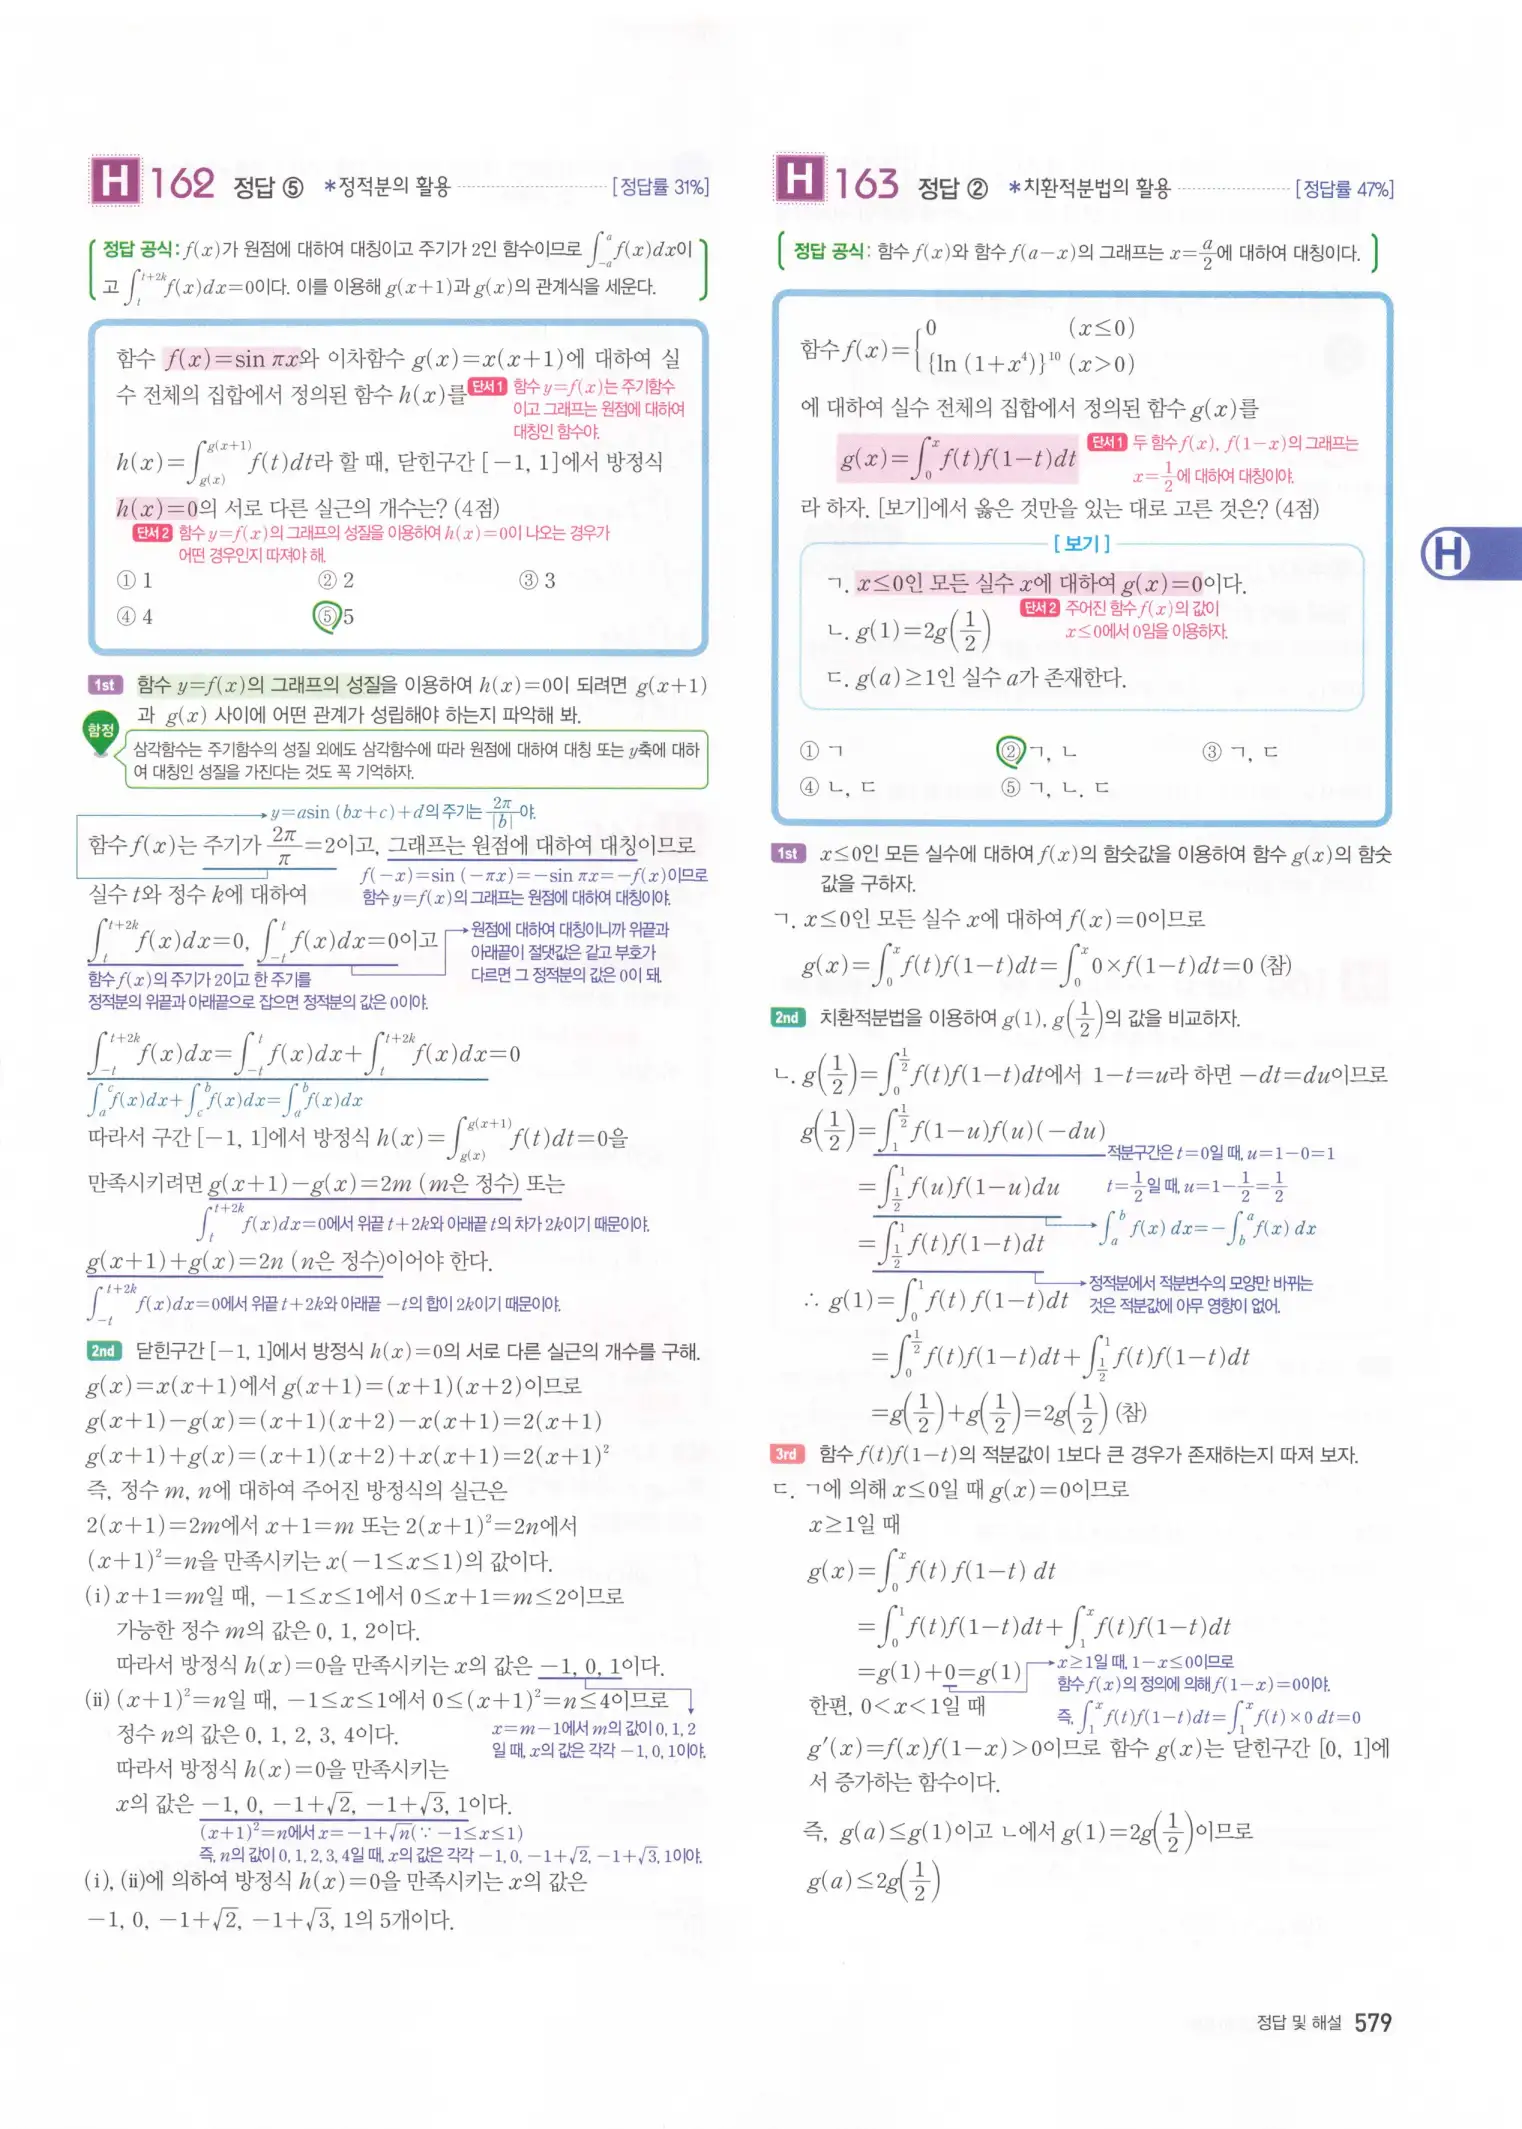 H 162 정답 ⑤ *정적분의 활용 [정답률 31%]
정답 공식: f(x)가 원점에 대하여 대칭이고 주기가 2인 함수이므로 ∫_{-a}^{a} f(x)dx이
고 ∫_{t}^{t+2k} f(x)dx=0이다. 이를 이용해 g(x+1)과 g(x)의 관계식을 세운다.
함수 f(x)=sin πx와 이차함수 g(x)=x(x+1)에 대하여 실
수 전체의 집합에서 정의된 함수 h(x)를
단서1 함수 y=f(x)는 주기함수
이고 그래프는 원점에 대하여
대칭인 함수야.
h(x)=∫_{g(x)}^{g(x+1)} f(t)dt라 할 때, 닫힌구간 [-1, 1]에서 방정식
h(x)=0의 서로 다른 실근의 개수는? (4점)
단서2 함수 y=f(x)의 그래프의 성질을 이용하여 h(x)=0이 나오는 경우가
어떤 경우인지 따져야 해.
① 1 ② 2 ③ 3
④ 4 ⑤ 5
1st 함수 y=f(x)의 그래프의 성질을 이용하여 h(x)=0이 되려면 g(x+1)
과 g(x) 사이에 어떤 관계가 성립해야 하는지 파악해 봐.
함정
삼각함수는 주기함수의 성질 외에도 삼각함수에 따라 원점에 대하여 대칭 또는 y축에 대하
여 대칭인 성질을 가진다는 것도 꼭 기억하자.
y=asin (bx+c)+d의 주기는 2π/|b|야.
함수 f(x)는 주기가 2π/π=2이고, 그래프는 원점에 대하여 대칭이므로
f(-x)=sin (-πx)=-sin πx=-f(x)이므로
실수 t와 정수 k에 대하여
함수 y=f(x)의 그래프는 원점에 대하여 대칭이야.
∫_{t}^{t+2k} f(x)dx=0, ∫_{-t}^{t} f(x)dx=0이고
원점에 대하여 대칭이니까 위끝과
아래끝이 절댓값은 같고 부호가
다르면 그 정적분의 값은 0이 돼.
함수 f(x)의 주기가 2이고 한 주기를
정적분의 위끝과 아래끝으로 잡으면 정적분의 값은 0이야.
∫_{-t}^{t+2k} f(x)dx=∫_{-t}^{t} f(x)dx+∫_{t}^{t+2k} f(x)dx=0
∫_{a}^{c} f(x)dx+∫_{c}^{b} f(x)dx=∫_{a}^{b} f(x)dx
따라서 구간 [-1, 1]에서 방정식 h(x)=∫_{g(x)}^{g(x+1)} f(t)dt=0을
만족시키려면 g(x+1)-g(x)=2m (m은 정수) 또는
∫_{t}^{t+2k} f(x)dx=0에서 위끝 t+2k와 아래끝 t의 차가 2k이기 때문이야.
g(x+1)+g(x)=2n (n은 정수)이어야 한다.
∫_{-t}^{t+2k} f(x)dx=0에서 위끝 t+2k와 아래끝 -t의 합이 2k이기 때문이야.
2nd 닫힌구간 [-1, 1]에서 방정식 h(x)=0의 서로 다른 실근의 개수를 구해.
g(x)=x(x+1)에서 g(x+1)=(x+1)(x+2)이므로
g(x+1)-g(x)=(x+1)(x+2)-x(x+1)=2(x+1)
g(x+1)+g(x)=(x+1)(x+2)+x(x+1)=2(x+1)²
즉, 정수 m, n에 대하여 주어진 방정식의 실근은
2(x+1)=2m에서 x+1=m 또는 2(x+1)²=2n에서
(x+1)²=n을 만족시키는 x(-1≤x≤1)의 값이다.
(i) x+1=m일 때, -1≤x≤1에서 0≤x+1=m≤2이므로
가능한 정수 m의 값은 0, 1, 2이다.
따라서 방정식 h(x)=0을 만족시키는 x의 값은 -1, 0, 1이다.
(ii) (x+1)²=n일 때, -1≤x≤1에서 0≤(x+1)²=n≤4이므로
정수 n의 값은 0, 1, 2, 3, 4이다.
x=m-1에서 m의 값이 0, 1, 2
일 때, x의 값은 각각 -1, 0, 1이야.
따라서 방정식 h(x)=0을 만족시키는
x의 값은 -1, 0, -1+√2, -1+√3, 1이다.
(x+1)²=n에서 x=-1+√n(∵ -1≤x≤1)
즉, n의 값이 0, 1, 2, 3, 4일 때, x의 값은 각각 -1, 0, -1+√2, -1+√3, 1이야.
(i), (ii)에 의하여 방정식 h(x)=0을 만족시키는 x의 값은
-1, 0, -1+√2, -1+√3, 1의 5개이다.
H 163 정답 ② *치환적분법의 활용 [정답률 47%]
정답 공식: 함수 f(x)와 함수 f(a-x)의 그래프는 x=a/2에 대하여 대칭이다.
함수 f(x)={ 0 (x≤0)
{ln (1+x⁴)}¹⁰ (x>0)
에 대하여 실수 전체의 집합에서 정의된 함수 g(x)를
g(x)=∫_{0}^{x} f(t)f(1-t)dt
단서1 두 함수 f(x), f(1-x)의 그래프는
x=1/2에 대하여 대칭이야.
라 하자. [보기]에서 옳은 것만을 있는 대로 고른 것은? (4점)
[보기]
ㄱ. x≤0인 모든 실수 x에 대하여 g(x)=0이다.
단서2 주어진 함수 f(x)의 값이
x≤0에서 0임을 이용하자.
ㄴ. g(1)=2g(1/2)
ㄷ. g(a)≥1인 실수 a가 존재한다.
① ㄱ ② ㄱ, ㄴ ③ ㄱ, ㄷ
④ ㄴ, ㄷ ⑤ ㄱ, ㄴ, ㄷ
1st x≤0인 모든 실수에 대하여 f(x)의 함숫값을 이용하여 함수 g(x)의 함숫
값을 구하자.
ㄱ. x≤0인 모든 실수 x에 대하여 f(x)=0이므로
g(x)=∫_{0}^{x} f(t)f(1-t)dt=∫_{0}^{x} 0×f(1-t)dt=0 (참)
2nd 치환적분법을 이용하여 g(1), g(1/2)의 값을 비교하자.
ㄴ. g(1/2)=∫_{0}^{1/2} f(t)f(1-t)dt에서 1-t=u라 하면 -dt=du이므로
g(1/2)=∫_{1}^{1/2} f(1-u)f(u)(-du)
적분구간은 t=0일 때, u=1-0=1
=∫_{1/2}^{1} f(u)f(1-u)du
t=1/2일 때, u=1-1/2=1/2
=∫_{1/2}^{1} f(t)f(1-t)dt
∫_{a}^{b} f(x) dx=-∫_{b}^{a} f(x) dx
∴ g(1)=∫_{0}^{1} f(t) f(1-t)dt
정적분에서 적분변수의 모양만 바뀌는
것은 적분값에 아무 영향이 없어.
=∫_{0}^{1/2} f(t)f(1-t)dt+∫_{1/2}^{1} f(t)f(1-t)dt
=g(1/2)+g(1/2)=2g(1/2) (참)
3rd 함수 f(t)f(1-t)의 적분값이 1보다 큰 경우가 존재하는지 따져 보자.
ㄷ. ㄱ에 의해 x≤0일 때 g(x)=0이므로
x≥1일 때
g(x)=∫_{0}^{x} f(t) f(1-t) dt
=∫_{0}^{1} f(t)f(1-t)dt+∫_{1}^{x} f(t)f(1-t)dt
=g(1)+0=g(1)
x≥1일 때, 1-x≤0이므로
함수 f(x)의 정의에 의해 f(1-x)=0이야.
즉, ∫_{1}^{x} f(t)f(1-t)dt=∫_{1}^{x} f(t)×0 dt=0
한편, 0<x<1일 때
g′(x)=f(x)f(1-x)>0이므로 함수 g(x)는 닫힌구간 [0, 1]에
서 증가하는 함수이다.
즉, g(a)≤g(1)이고 ㄴ에서 g(1)=2g(1/2)이므로
g(a)≤2g(1/2)
H
정답 및 해설 579